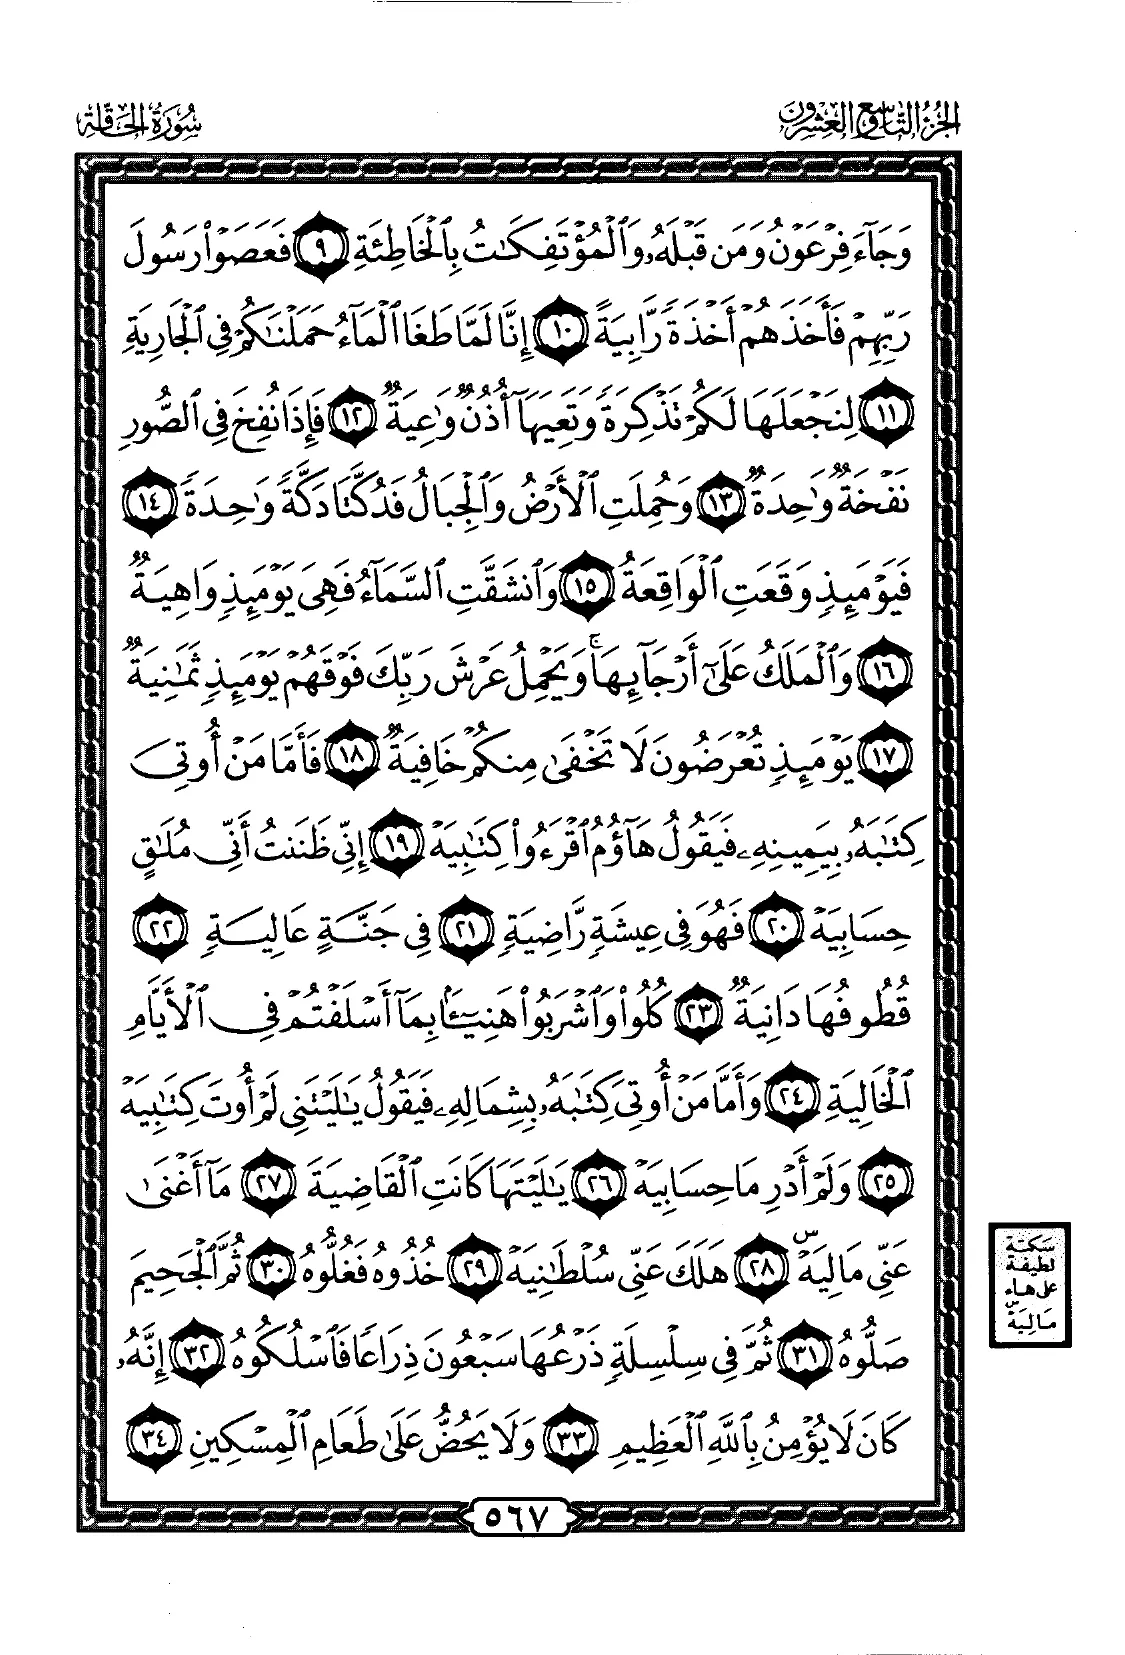 الجزء التاسع والعشرون
سورة الحاقة
وَجَآءَ فِرْعَوْنُ وَمَن قَبْلَهُۥ وَٱلْمُؤْتَفِكَٰتُ بِٱلْخَاطِئَةِ ﴿٩﴾ فَعَصَوْا۟ رَسُولَ
رَبِّهِمْ فَأَخَذَهُمْ أَخْذَةً رَّابِيَةً ﴿١٠﴾ إِنَّا لَمَّا طَغَا ٱلْمَآءُ حَمَلْنَٰكُمْ فِى ٱلْجَارِيَةِ
﴿١١﴾ لِنَجْعَلَهَا لَكُمْ تَذْكِرَةً وَتَعِيَهَآ أُذُنٌ وَٰعِيَةٌ ﴿١٢﴾ فَإِذَا نُفِخَ فِى ٱلصُّورِ
نَفْخَةٌ وَٰحِدَةٌ ﴿١٣﴾ وَحُمِلَتِ ٱلْأَرْضُ وَٱلْجِبَالُ فَدُكَّتَا دَكَّةً وَٰحِدَةً ﴿١٤﴾
فَيَوْمَئِذٍ وَقَعَتِ ٱلْوَاقِعَةُ ﴿١٥﴾ وَٱنشَقَّتِ ٱلسَّمَآءُ فَهِىَ يَوْمَئِذٍ وَاهِيَةٌ
﴿١٦﴾ وَٱلْمَلَكُ عَلَىٰٓ أَرْجَآئِهَا ۚ وَيَحْمِلُ عَرْشَ رَبِّكَ فَوْقَهُمْ يَوْمَئِذٍ ثَمَٰنِيَةٌ
﴿١٧﴾ يَوْمَئِذٍ تُعْرَضُونَ لَا تَخْفَىٰ مِنكُمْ خَافِيَةٌ ﴿١٨﴾ فَأَمَّا مَنْ أُوتِىَ
كِتَٰبَهُۥ بِيَمِينِهِۦ فَيَقُولُ هَآؤُمُ ٱقْرَءُوا۟ كِتَٰبِيَهْ ﴿١٩﴾ إِنِّى ظَنَنتُ أَنِّى مُلَٰقٍ
حِسَابِيَهْ ﴿٢٠﴾ فَهُوَ فِى عِيشَةٍ رَّاضِيَةٍ ﴿٢١﴾ فِى جَنَّةٍ عَالِيَةٍ ﴿٢٢﴾
قُطُوفُهَا دَانِيَةٌ ﴿٢٣﴾ كُلُوا۟ وَٱشْرَبُوا۟ هَنِيٓـًٔۢا بِمَآ أَسْلَفْتُمْ فِى ٱلْأَيَّامِ
ٱلْخَالِيَةِ ﴿٢٤﴾ وَأَمَّا مَنْ أُوتِىَ كِتَٰبَهُۥ بِشِمَالِهِۦ فَيَقُولُ يَٰلَيْتَنِى لَمْ أُوتَ كِتَٰبِيَهْ
﴿٢٥﴾ وَلَمْ أَدْرِ مَا حِسَابِيَهْ ﴿٢٦﴾ يَٰلَيْتَهَا كَانَتِ ٱلْقَاضِيَةَ ﴿٢٧﴾ مَآ أَغْنَىٰ
عَنِّى مَالِيَهْ ۜ ﴿٢٨﴾ هَلَكَ عَنِّى سُلْطَٰنِيَهْ ﴿٢٩﴾ خُذُوهُ فَغُلُّوهُ ﴿٣٠﴾ ثُمَّ ٱلْجَحِيمَ
صَلُّوهُ ﴿٣١﴾ ثُمَّ فِى سِلْسِلَةٍ ذَرْعُهَا سَبْعُونَ ذِرَاعًا فَٱسْلُكُوهُ ﴿٣٢﴾ إِنَّهُۥ
كَانَ لَا يُؤْمِنُ بِٱللَّهِ ٱلْعَظِيمِ ﴿٣٣﴾ وَلَا يَحُضُّ عَلَىٰ طَعَامِ ٱلْمِسْكِينِ ﴿٣٤﴾
سكتة
لطيفة
على هاء
مَالِيَهْ ۜ
٥٦٧